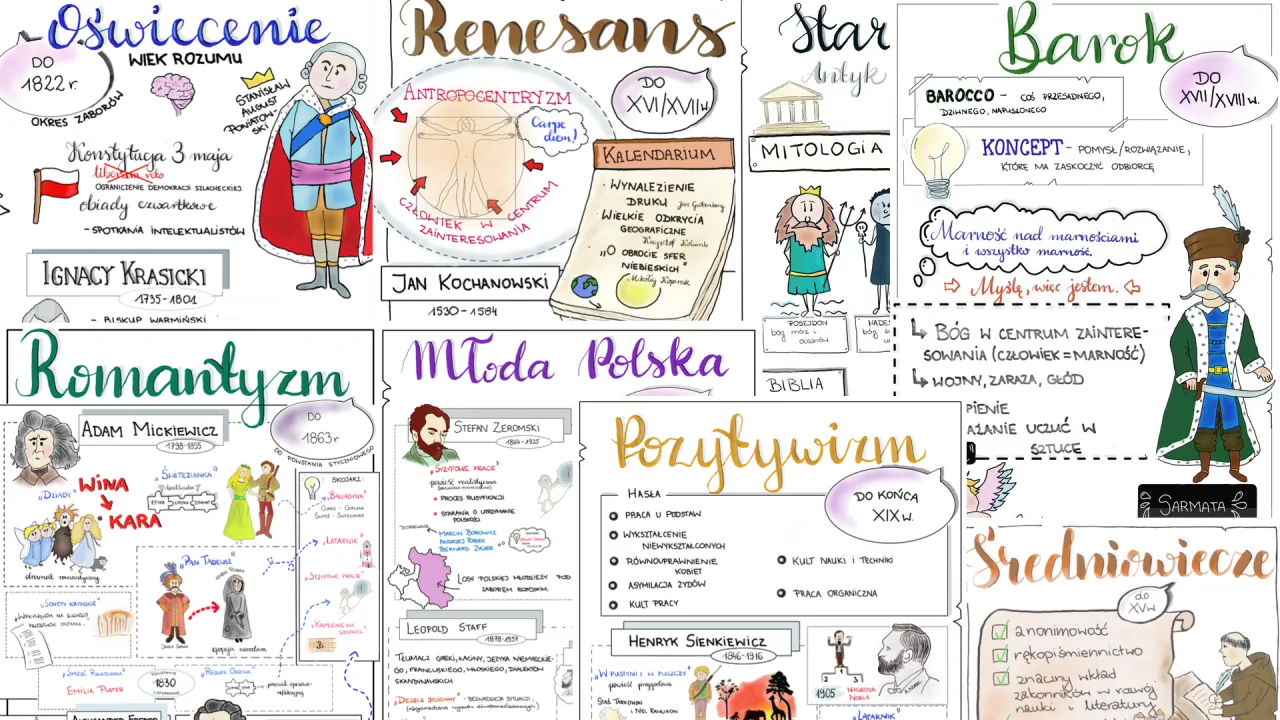 Oświecenie
WIEK ROZUMU
DO
1822 r.
OKRES ZABORÓW
STANISŁAW
AUGUST
PONIATOW-
SKI
Konstytucja 3 maja
liberum veto
OGRANICZENIE DEMOKRACJI SZLACHECKIEJ
obiady czwartkowe
- SPOTKANIA INTELEKTUALISTÓW
IGNACY KRASICKI
1735-1801
- BISKUP WARMIŃSKI
Renesans
ANTROPOCENTRYZM
DO
XVI/XVII w.
Carpe
diem!
CZŁOWIEK W CENTRUM
ZAINTERESOWANIA
KALENDARIUM
WYNALEZIENIE
DRUKU Jan Gutenberg
WIELKIE ODKRYCIA
GEOGRAFICZNE
Krzysztof Kolumb
"O OBROCIE SFER
NIEBIESKICH"
Mikołaj Kopernik
JAN KOCHANOWSKI
1530-1584
Star
Antyk
MITOLOGIA
POSEJDON
bóg mórz i
oceanów
HADE
bóg
BIBLIA
Barok
DO
XVII/XVIII w.
BAROCCO - COŚ PRZESADNEGO,
DZIWNEGO, NAPUSZONEGO
KONCEPT - POMYSŁ/ROZWIĄZANIE,
KTÓRE MA ZASKOCZYĆ ODBIORCĘ
Marność nad marnościami
i wszystko marność.
Myślę, więc jestem.
BÓG W CENTRUM ZAINTERE-
SOWANIA (CZŁOWIEK = MARNOŚĆ)
WOJNY, ZARAZA, GŁÓD
PIENIE
AŻANIE UCZUĆ W
SZTUCE
SARMATA
Romantyzm
ADAM MICKIEWICZ
1798-1855
DO
1863 r
DO POWSTANIA STYCZNIOWEGO
"DZIADY"
WINA
KARA
dramat romantyczny
"ŚWITEZIANKA"
ballada
SKOJARZ:
"BALLADYNA"
"LATARNIK"
"SYZYFOWE PRACE"
"KAMIENIE NA
SZANIEC"
"PAN TADEUSZ"
epopeja narodowa
"SONETY KRYMSKIE"
"ŚMIERĆ PUŁKOWNIKA"
EMILIA PLATER
POWSTANIE
1830
"REDUTA ORDONA"
ALEKSANDER FREDRO
Młoda Polska
STEFAN ŻEROMSKI
1864-1925
"SYZYFOWE PRACE"
powieść realistyczna
PROCES RUSYFIKACJI
STARANIA O UTRZYMANIE
POLSKOŚCI
MARCIN BOROWICZ
ANDRZEJ RADEK
BERNARD ZYGIER
LOSY POLSKIEJ MŁODZIEŻY POD
ZABOREM ROSYJSKIM.
LEOPOLD STAFF
1878-1957
TŁUMACZ GREKI, ŁACINY, JĘZYKA NIEMIECKIE-
GO, FRANCUSKIEGO, WŁOSKIEGO, DIALEKTÓW
SKANDYNAWSKICH
"DESZCZ JESIENNY" - BEZNADZIEJA SYTUACJI
Pozytywizm
HASŁA
PRACA U PODSTAW
WYKSZTAŁCENIE
NIEWYKSZTAŁCONYCH
RÓWNOUPRAWNIENIE
KOBIET
ASYMILACJA ŻYDÓW
KULT PRACY
DO KOŃCA
XIX w.
KULT NAUKI i TECHNIKI
PRACA ORGANICZNA
HENRYK SIENKIEWICZ
1846-1916
"W PUSTYNI I W PUSZCZY
powieść przygodowa
STAŚ TARKOWSKI
i NEL RAWLISON
1905
NAGRODA
NOBLA
"LATARNIK"
Średniowiecze
do
XV w
anonimowość
piśmiennictwo